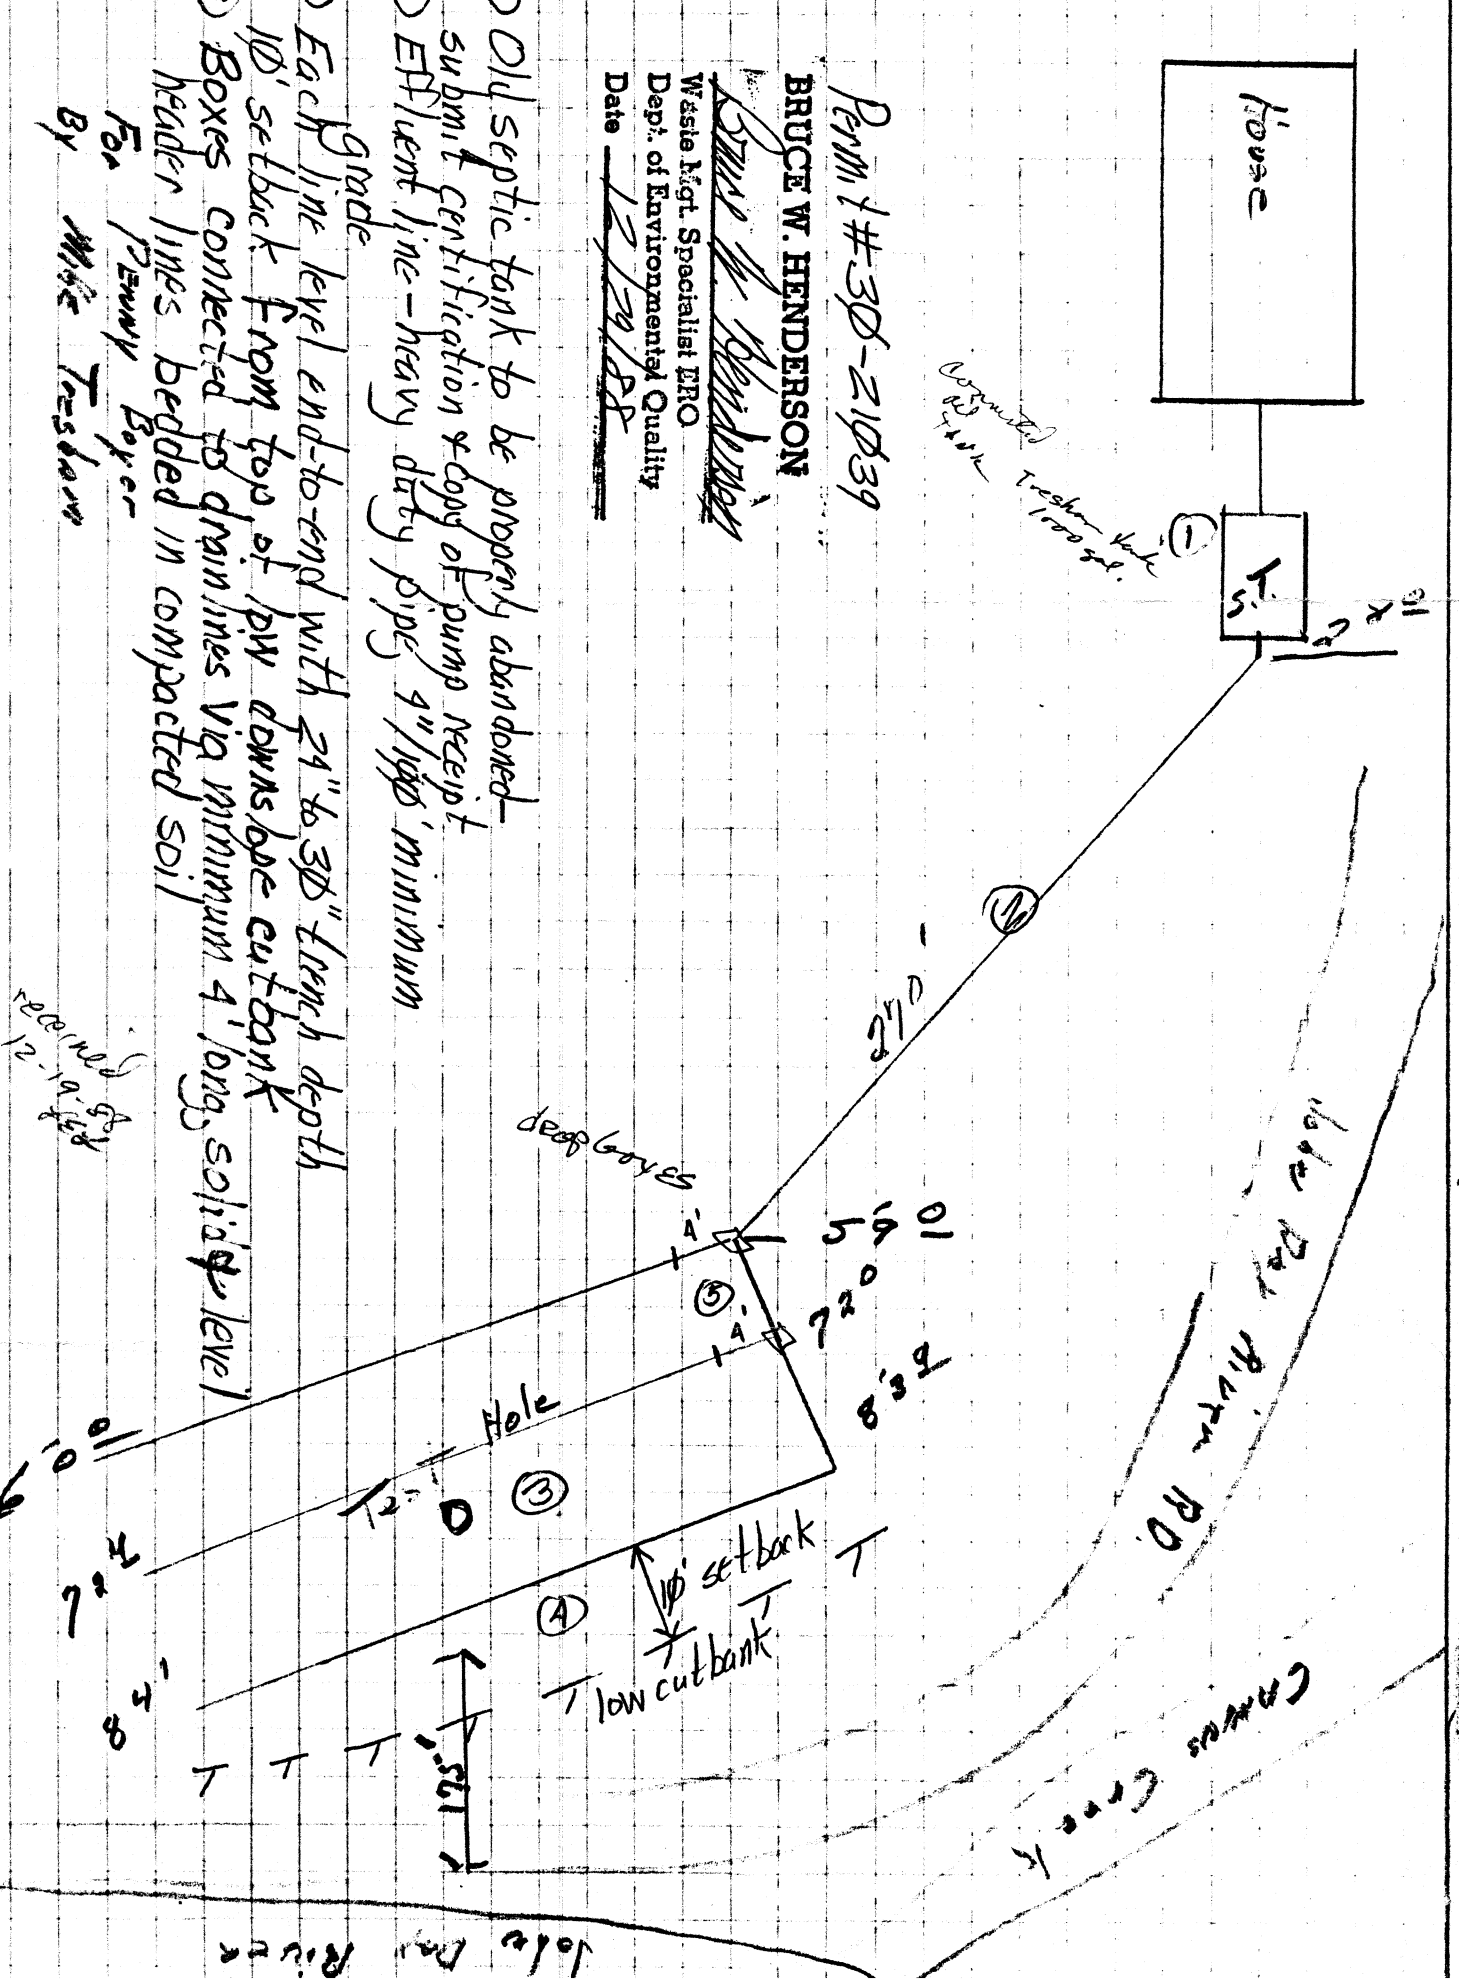 House
Connected
Tresham tank
1000 gal.
1
S.T.
Permit #30-21039
BRUCE W. HENDERSON
Bruce W. Henderson
Waste Mgt. Specialist ERO
Dept. of Environmental Quality
Date 12/29/88
Old septic tank to be properly abandoned-
submit certification & copy of pump receipt
Effluent line - heavy duty pipe, 4"/100' minimum
grade
Each line level end-to-end with 24" to 30" trench depth
10' setback from top of low downslope cutbank
Boxes connected to drainlines via minimum 4' long, solid, level
header lines bedded in compacted soil
For Penny Boyer
By Mike Tresham
received
12-19-88
270'
Drop Boxes
4'
5
4'
Hole
12"
3
4
10' setback
low cutbank
125'
John Day River RD.
Camus Creek
John Day River